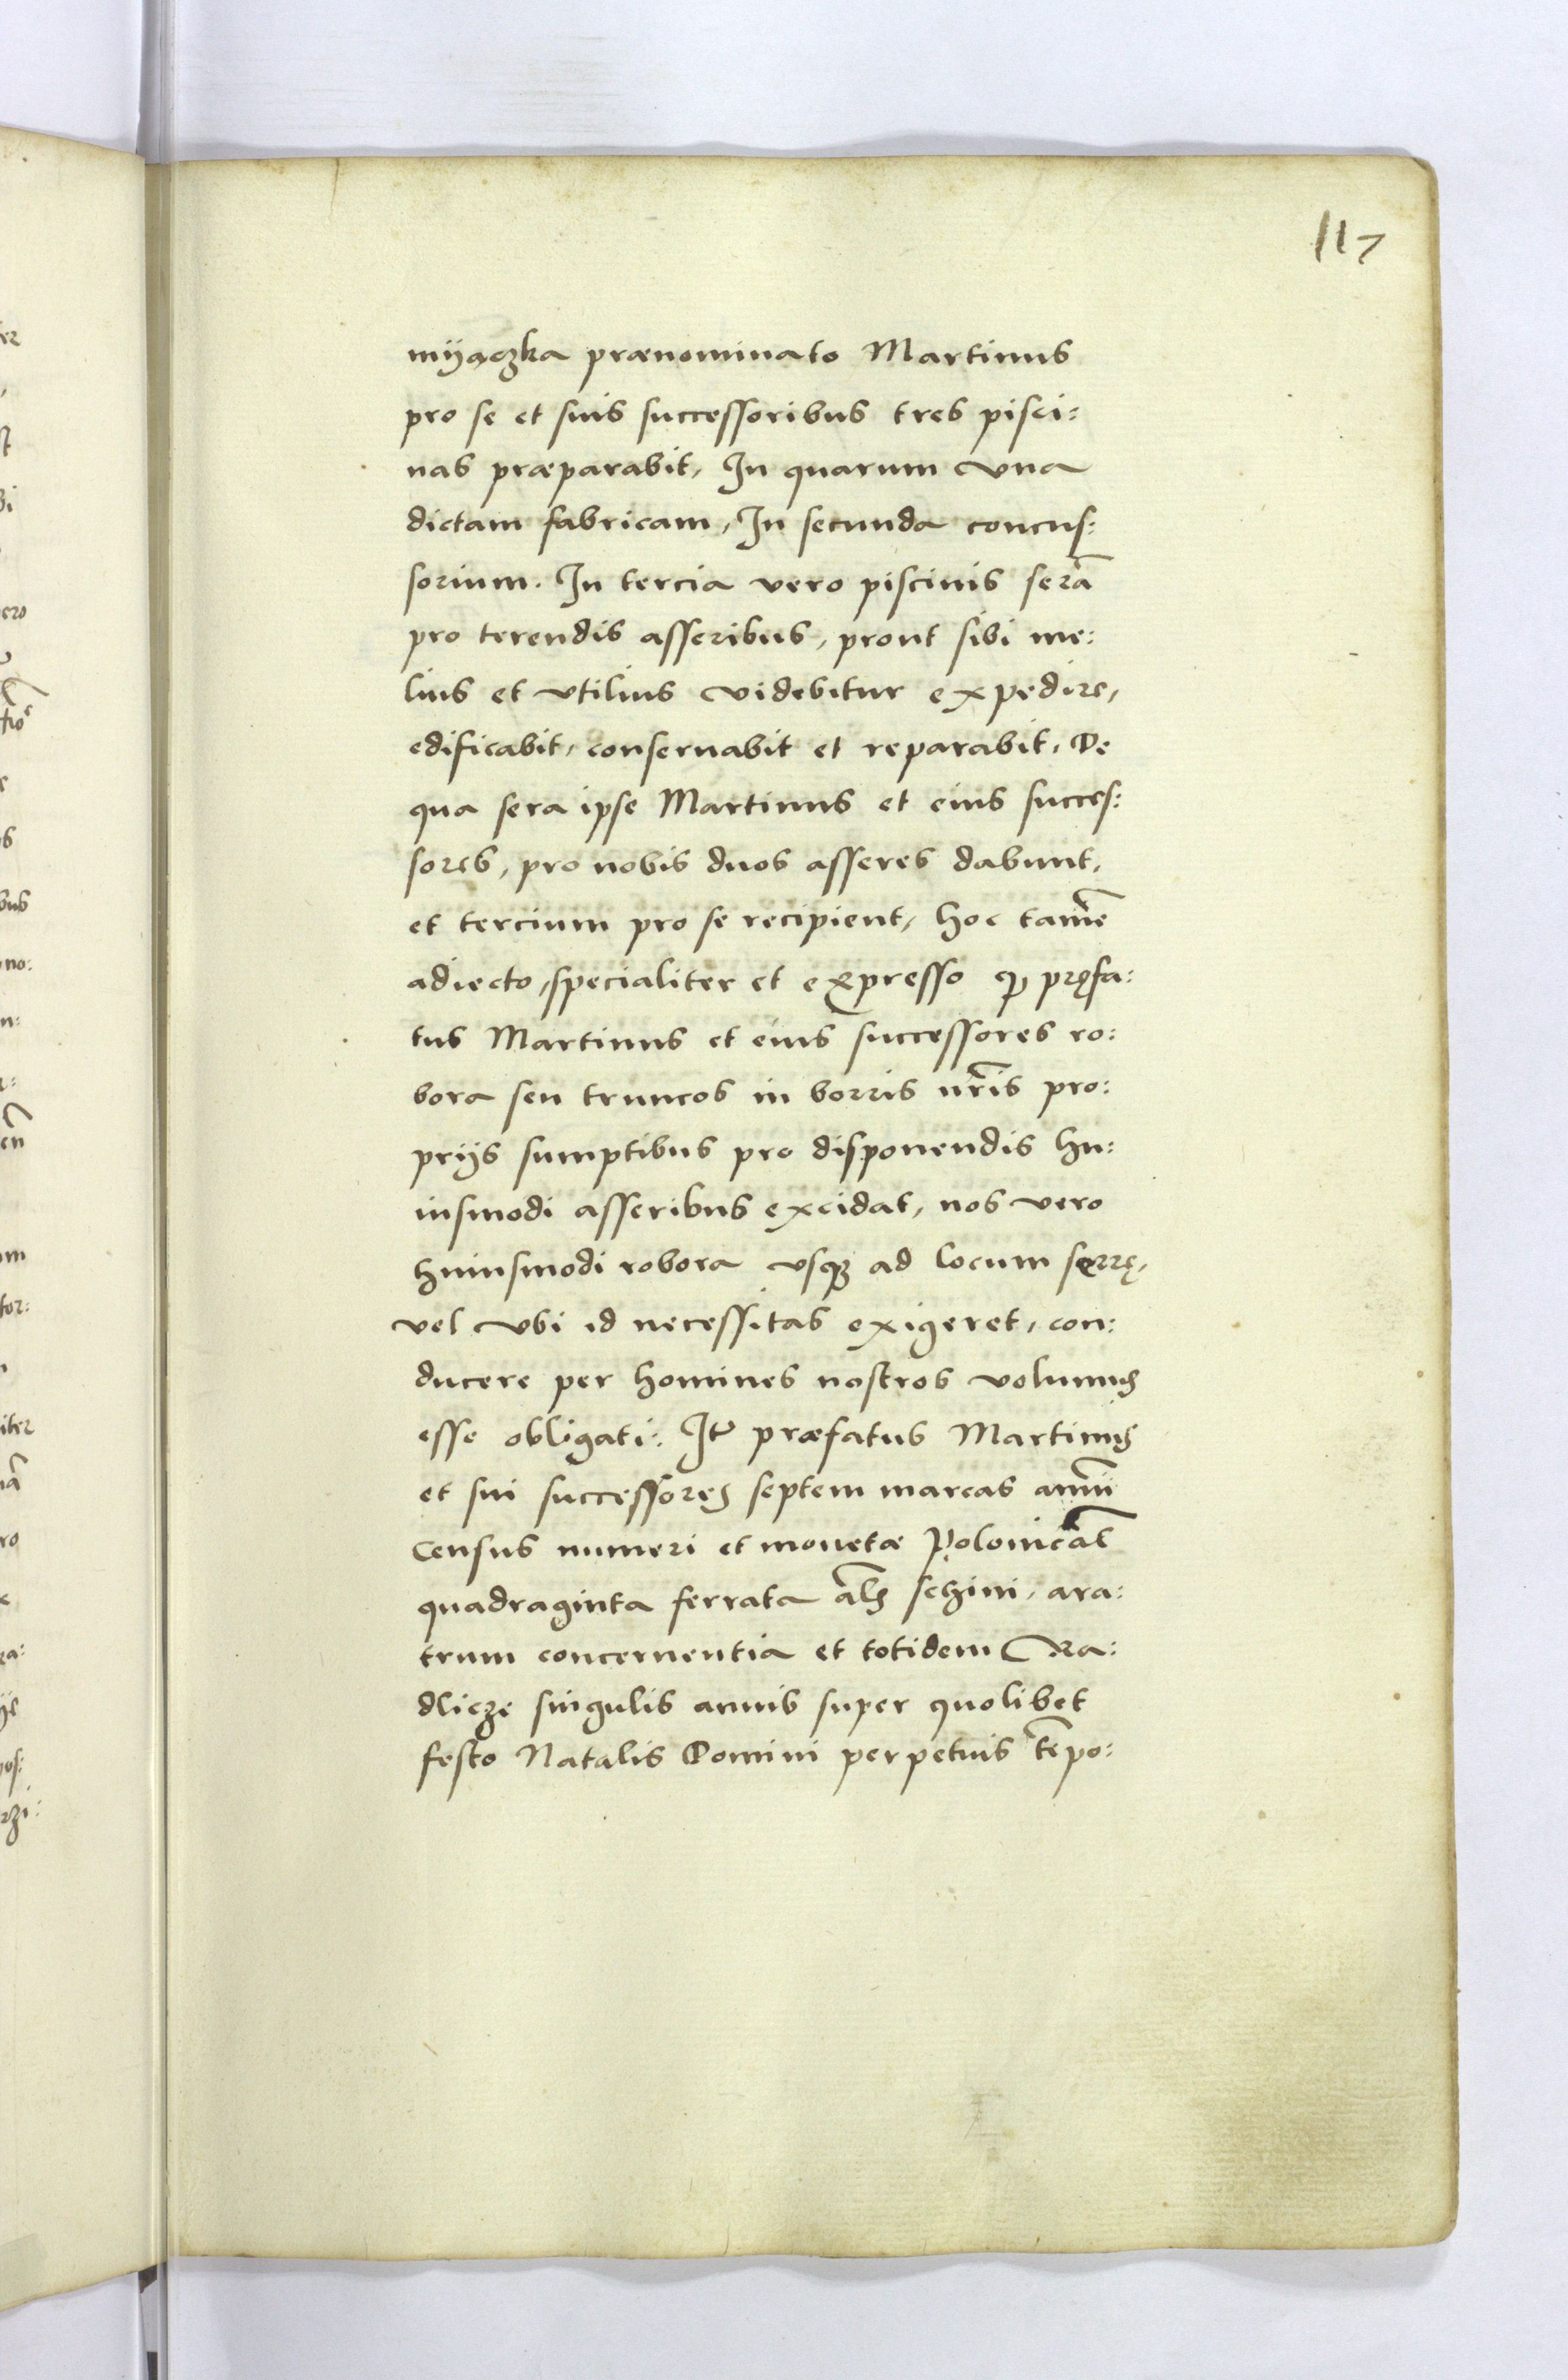 117
mijączka prænominato Martinus
pro se et suis successoribus tres pisci:
nas præparabit, In quarum vna
dictam fabricam, In secunda concus:
sorium. In tercia vero piscinis serā
pro terendis asseribus, prout sibi me:
lius et vtilius videbitur expedire,
edificabit, conseruabit et reparabit, De
qua sera ipse Martinus et eius succes:
sores, pro nobis duos asseres dabunt,
et tercium pro se recipient, hoc tamē
adiecto, specialiter et expresso ꝙ pręfa:
tus Martinus et eius successores ro:
bora seu truncos in borris nr̄is pro:
prijs sumptibus pro disponendis hu:
iusmodi asseribus excidat, nos vero
huiusmodi robora vsqꝫ ad locum serrę,
vel vbi id necessitas exigeret, con:
ducere per homines nostros volumus
esse obligati: Itē præfatus Martinus
et sui successores septem marcas annui
Census numeri et monetæ Polonicāl
quadraginta ferrata al̄s schini, ara:
trum concernentia et totidem Ra:
dlicze singulis annis super quolibet
festo Natalis Domini perpetuis tēpo: